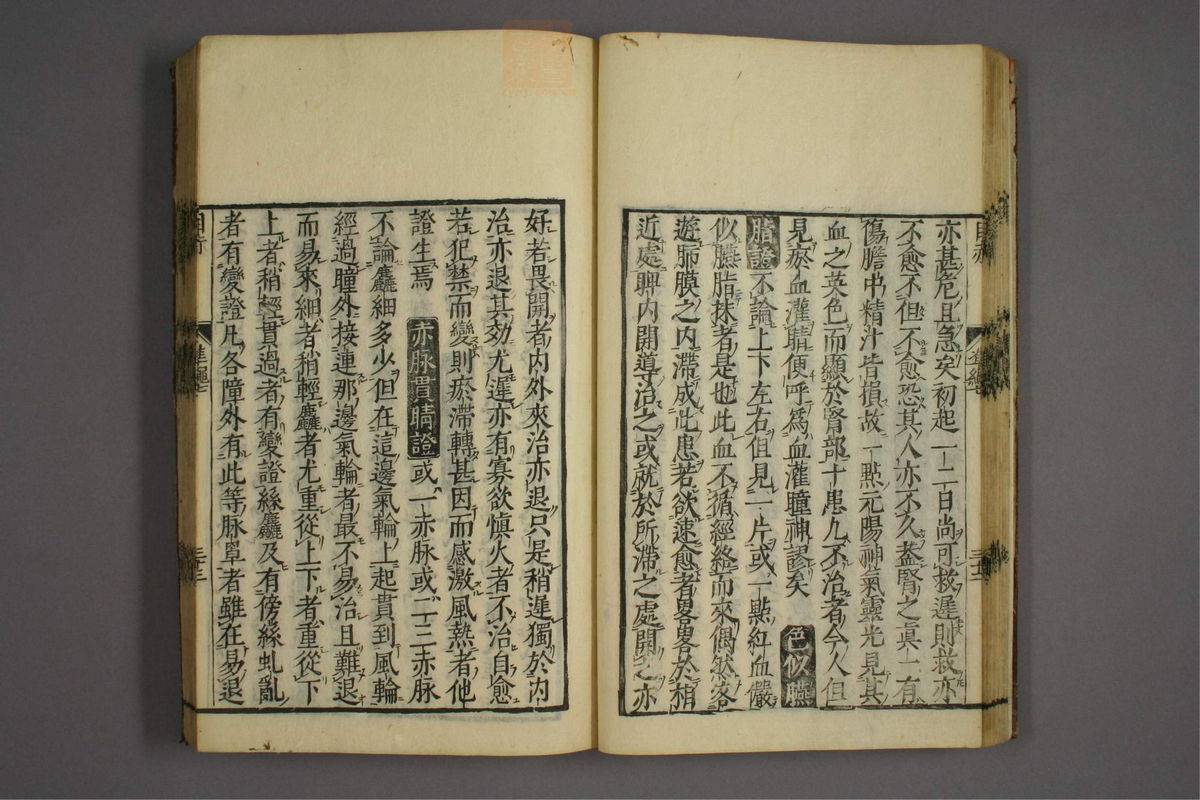 亦甚危且急矣初起一二日尚可救遲則救亦
不愈不但不愈恐其人亦不久蓋腎之眞一有
傷膽中精汁皆損故一點元陽神氣靈光見其
血之英色而顯於腎部十患九不治者今人但
見瘀血灌睛便呼爲血灌瞳神謬矣 色似臙
脂證不論上下左右但見一片或一點紅血嚴
似臙脂抹者是也此血不循經絡而來偶然客
遊肺膜之内滯成此患若欲速愈者畧畧於相
近處脾内開導治之或就於所滯之處開之亦
好若畏開者内外來治亦退只是稍遲獨於内
治亦退其効尤遲亦有寡欲慎火者不治自愈
若犯禁而變則瘀滯轉甚因而感激風熱者他
證生焉 赤脉貫睛證或一赤脉或二三赤脉
不論麤細多少但在這邊氣輪上起貫到風輪
經過瞳外接連那邊氣輪者最不易治且難退
而易來細者稍輕麤者尤重從上下者重從下
上者稍輕貫過者有變證絲麤及有傍絲虬亂
者有變證凡各障外有此等脉罩者雖在易退